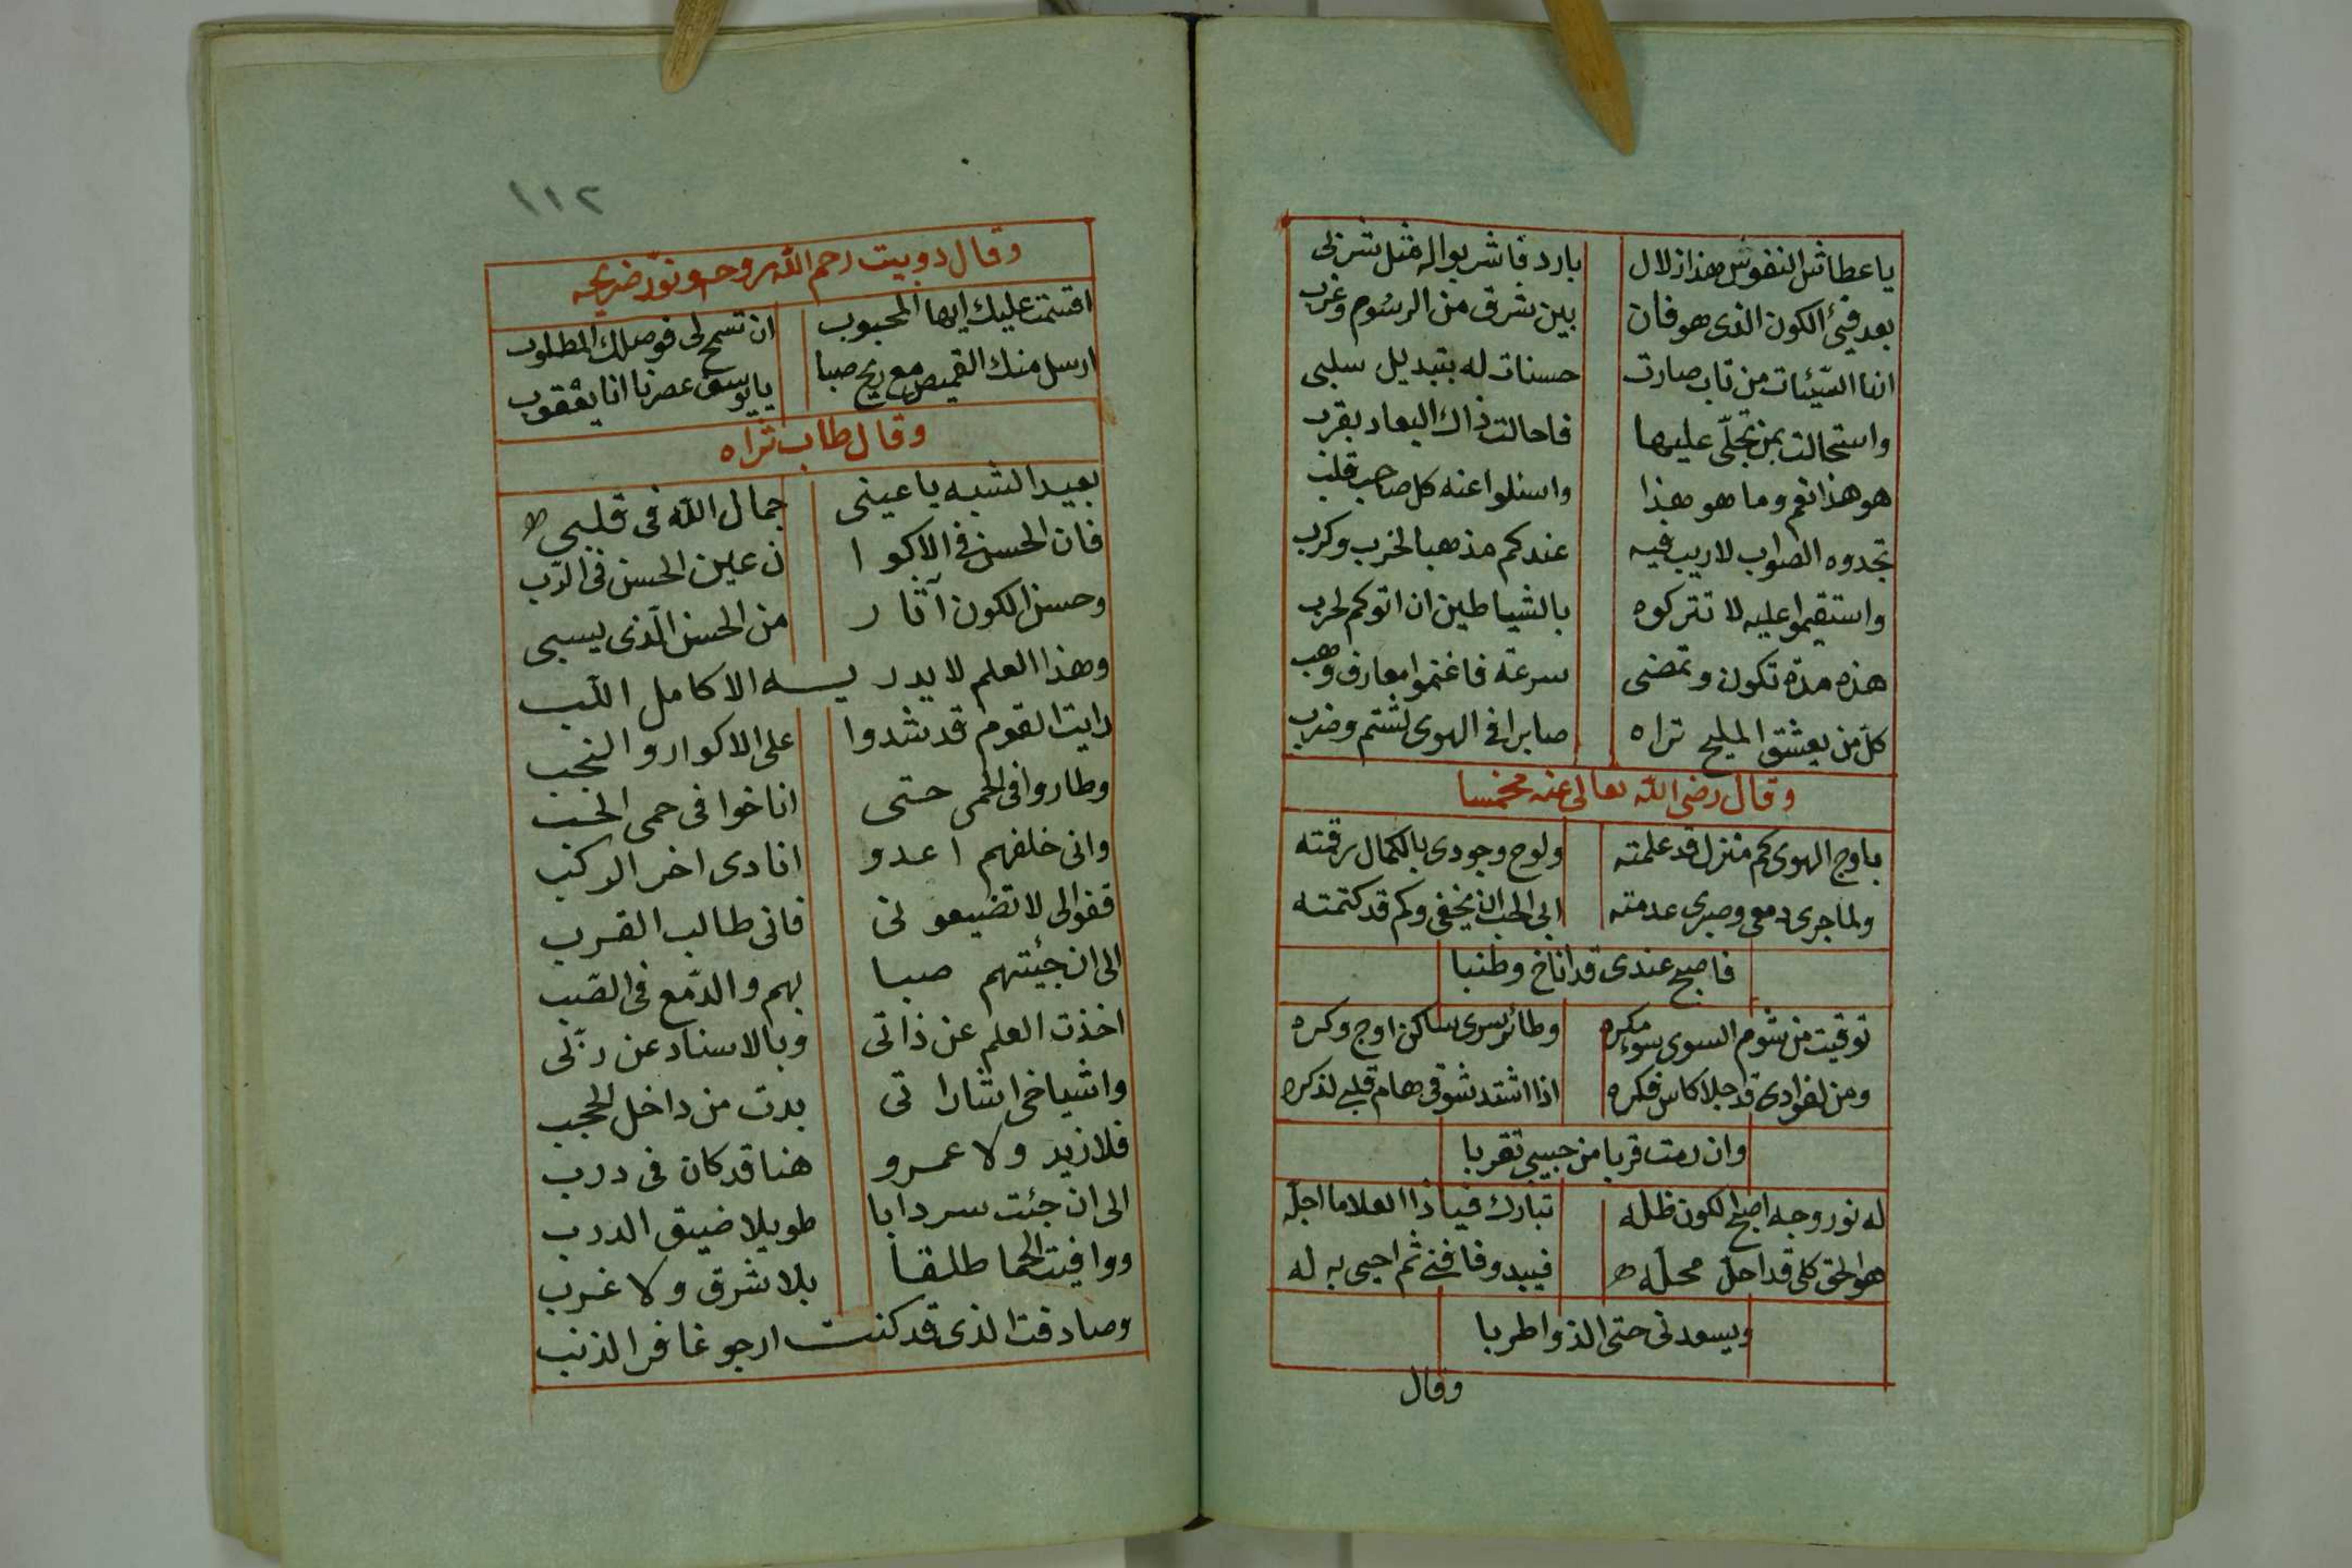 يا عطاش النفوس هذا زلال بارد فاشربوا له مثل شربى
بعد فيئ الكون الذى هو فان بين شرق من الرسوم وغرب
انما السّيّئات من تاب صارت حسنات له بتبديل سلبى
واستحالت بمن تجلّى عليها فاحالت ذاك البعاد بقرب
هو هذا نعم وما هو هذا واسئلوا عنه كل صاحب قلب
تجدوه الصواب لا ريب فيه عندكم مذهبا لخرب وكرب
واستقيموا عليه لا تتركوه بالشياطين ان اتوكم لحرب
هذه مدة تكون وتمضى سرعة فاغنموا معارف وهب
كل من يعشق المليح تراه صابرا فى الهوى لشتم وضرب
وقال رضى الله تعالى عنه مخمسا
باوج الهوى كم منزل قد علمته ولوح وجودى بالكمال رقمته
ولما جرى دمعى وصبرى عدمته ابى الحب ان يخفى وكم قد كتمته
فاصبح عندى قد اناخ وطنبا
توقيت من شوم السوى سوء مكره وطائر سرى ساكن اوج وكره
ومن لفوادى قد جلا كاس فكره اذا اشتد شوقى هام قلبى لذكره
وان رمت قربا من حبيبى تقربا
له نور وجه اصبح الكون ظله تبارك فيا ذا العلا ما اجلّه
هو الحق كلى قد احل محلّه فيبدو فافنى ثم احيى به له
ويسعدنى حتى الذ واطربا
وقال
١١٢
وقال دوبيت رحم الله روحه ونوّر ضريحه
اقسمت عليك ايها المحبوب ان تسمح لى فوصلك المطلوب
ارسل منك القميص مع ريح صبا يا يوسف عصرنا انا يعقوب
وقال طاب ثراه
بعيد الشبه يا عينى جمال الله فى قلبى
فان الحسن فى الاكوا ن عين الحسن فى الرّب
وحسن الكون آثار من الحسن الّذى يسبى
وهذا العلم لا يدريـــه الا كامل اللب
رايت القوم قد شدوا على الاكوار والنجب
وطاروا فى الحمى حتى اناخوا فى حمى الحب
وانى خلفهم اعدو انادى اخر الركب
قفوا لى لا تضيعونى فانى طالب القرب
الى ان جئتهم صبا بهم والدّمع فى الصّب
اخذت العلم عن ذاتى وبالاسناد عن ربّى
واشياخى اشاراتى بدت من داخل الحجب
فلا زيد ولا عمرو هنا قد كان فى درب
الى ان جئت سردابا طويلا ضيق الدرب
ووافيت الحما طلقا بلا شرق ولا غرب
وصادفت الذى قد كنت ارجو غافر الذنب